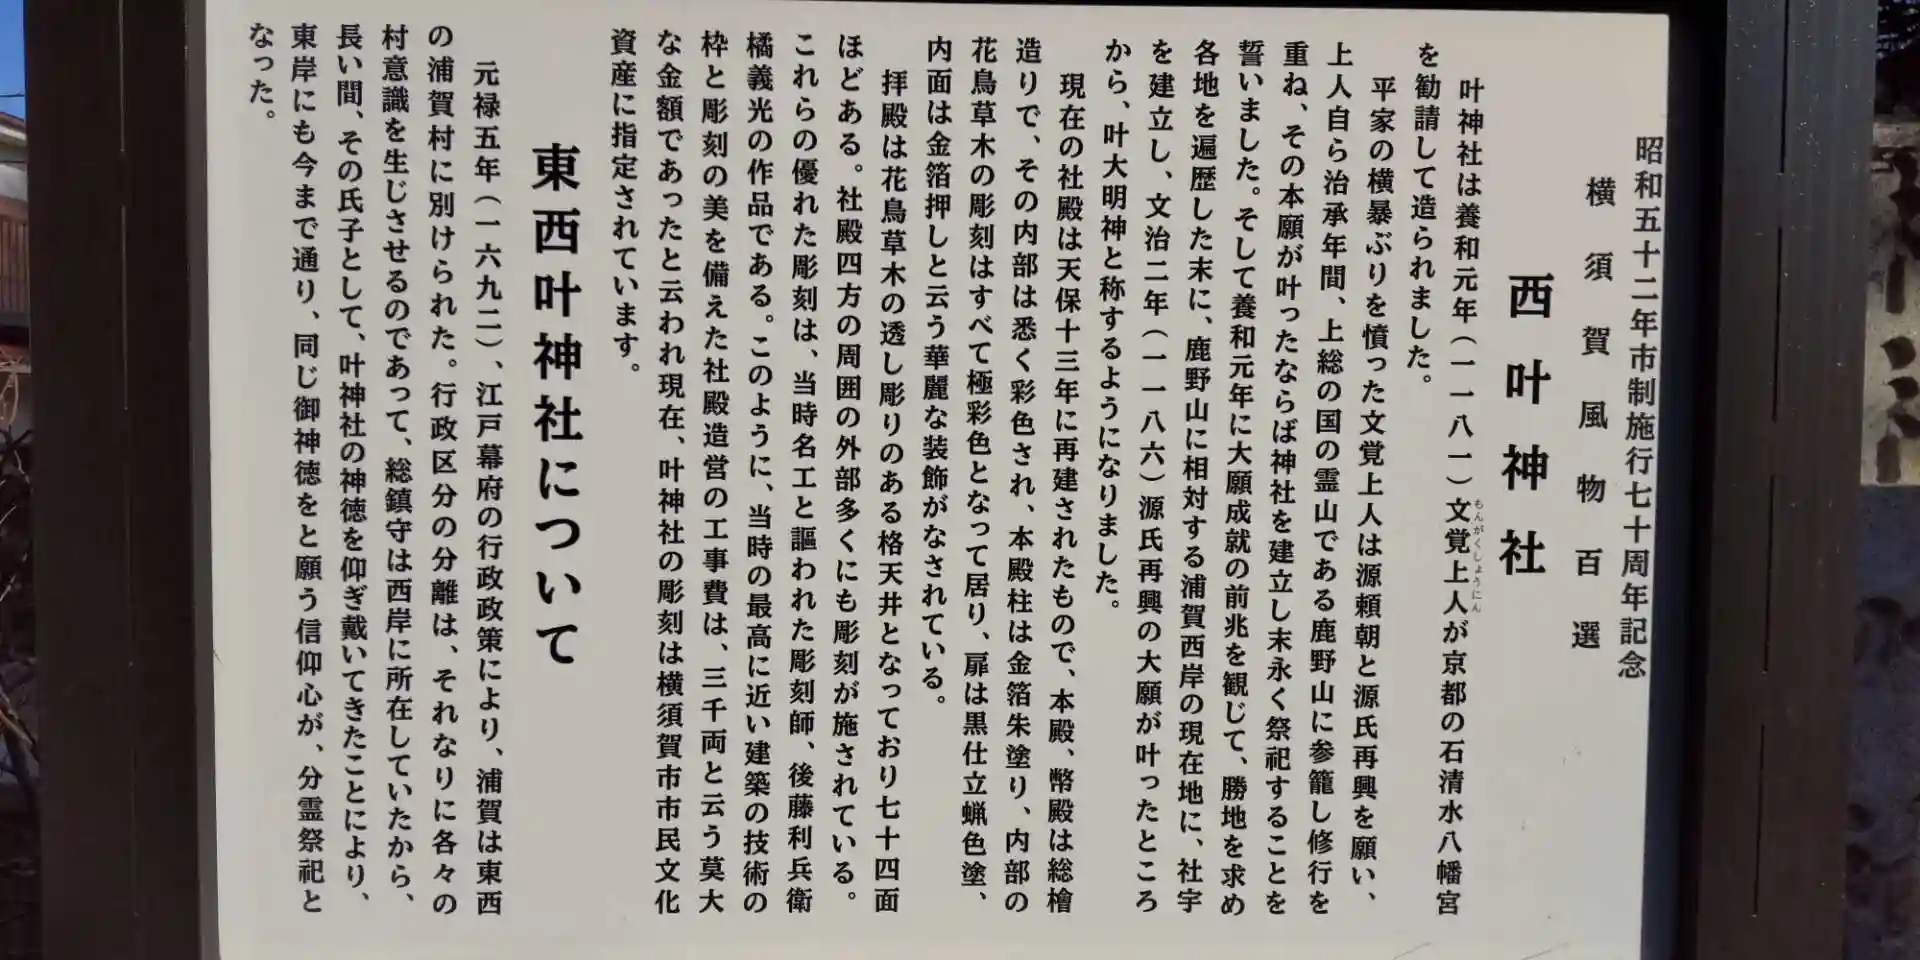 昭和五十二年市制施行七十周年記念
横須賀風物百選
西叶神社
叶神社は養和元年（一一八一）文覚上人が京都の石清水八幡宮
もんがくしょうにん
を勧請して造られました。
平家の横暴ぶりを憤った文覚上人は源頼朝と源氏再興を願い、
上人自ら治承年間、上総の国の霊山である鹿野山に参籠し修行を
重ね、その本願が叶ったならば神社を建立し末永く祭祀することを
誓いました。そして養和元年に大願成就の前兆を観じて、勝地を求め
各地を遍歴した末に、鹿野山に相対する浦賀西岸の現在地に、社宇
を建立し、文治二年（一一八六）源氏再興の大願が叶ったところ
から、叶大明神と称するようになりました。
現在の社殿は天保十三年に再建されたもので、本殿、幣殿は総檜
造りで、その内部は悉く彩色され、本殿柱は金箔朱塗り、内部の
花鳥草木の彫刻はすべて極彩色となって居り、扉は黒仕立蝋色塗、
内面は金箔押しと云う華麗な装飾がなされている。
拝殿は花鳥草木の透し彫りのある格天井となっており七十四面
ほどある。社殿四方の周囲の外部多くにも彫刻が施されている。
これらの優れた彫刻は、当時名工と謳われた彫刻師、後藤利兵衛
橘義光の作品である。このように、当時の最高に近い建築の技術の
枠と彫刻の美を備えた社殿造営の工事費は、三千両と云う莫大
な金額であったと云われ現在、叶神社の彫刻は横須賀市市民文化
資産に指定されています。
東西叶神社について
元禄五年（一六九二）、江戸幕府の行政政策により、浦賀は東西
の浦賀村に別けられた。行政区分の分離は、それなりに各々の
村意識を生じさせるのであって、総鎮守は西岸に所在していたから、
長い間、その氏子として、叶神社の神徳を仰ぎ戴いてきたことにより、
東岸にも今まで通り、同じ御神徳をと願う信仰心が、分霊祭祀と
なった。